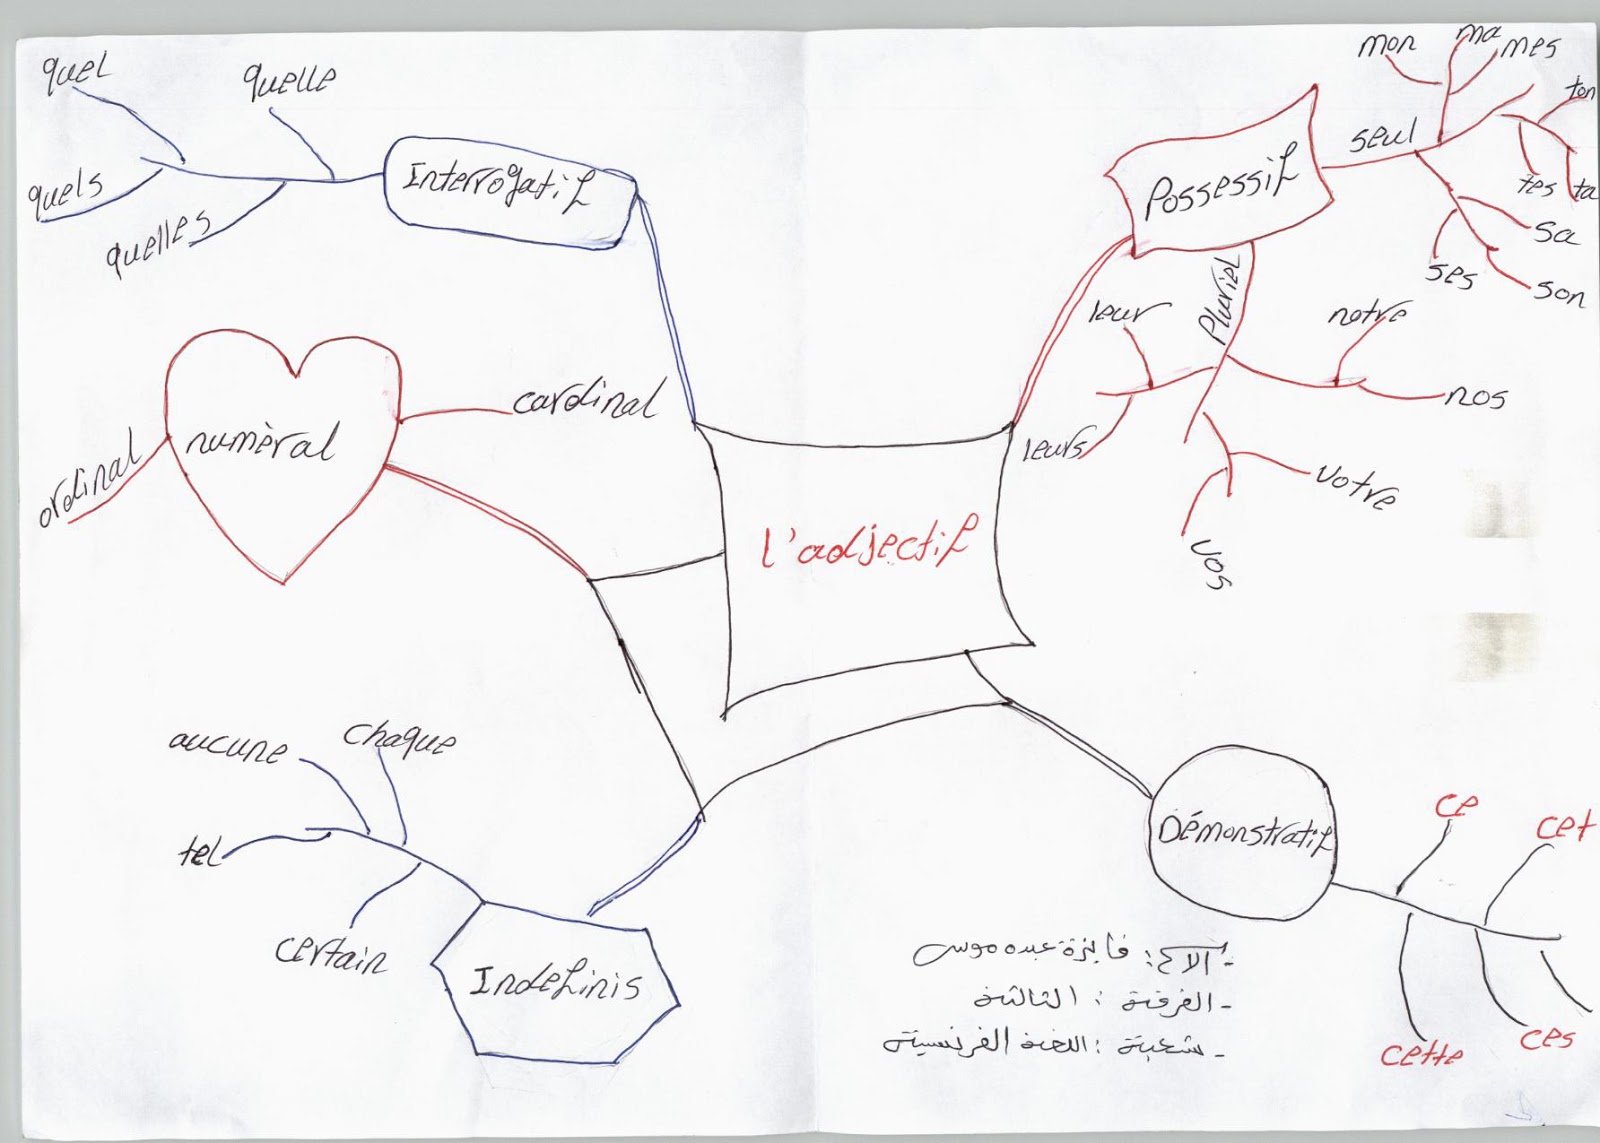 quel
quelle
quels
quelles
Interrogatif
mon
ma
mes
ton
tes
ta
seul
Possessif
sa
ses
son
Pluriel
leur
leurs
notre
nos
votre
vos
numèral
cardinal
ordinal
l'adjectif
aucune
chaque
tel
certain
Indefinis
Démonstratif
ce
cet
cette
ces
- الاسم : فايزة عبده موسى
- الفرقة : الثالثة
- شعبة : اللغة الفرنسية